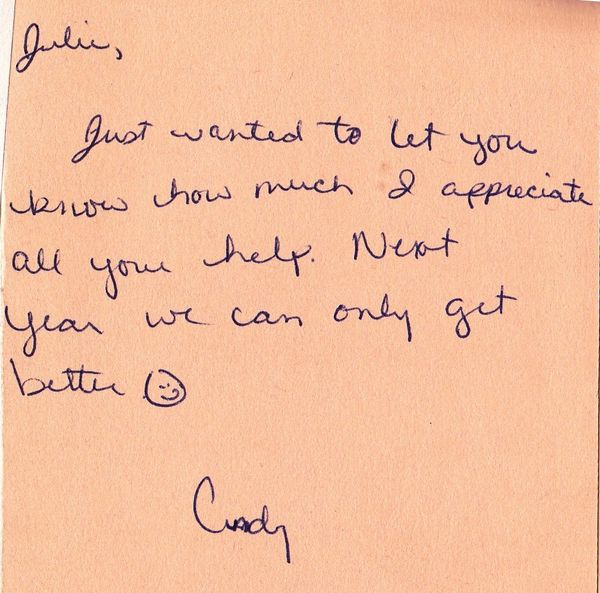 Julie,
Just wanted to let you
know how much I appreciate
all your help. Next
year we can only get
better ☺
Cindy